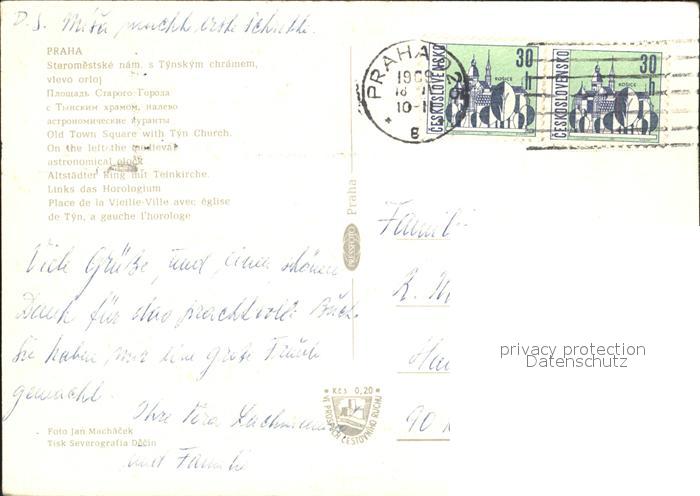 P.S. Míša macht erste Schritte.
PRAHA
Staroměstské nám. s Týnským chrámem,
vlevo orloj
Площадь Старого Города
с Тынским храмом, налево
астрономические куранты
Old Town Square with Týn Church.
On the left the medieval
astronomical clock
Altstädter Ring mit Teinkirche.
Links das Horologium
Place de la Vieille-Ville avec église
de Týn, a gauche l'horologe
Viele Grüße und einen schönen
Dank für das prachtvolle Buch.
Sie haben mir eine große Freude
gemacht.
Ihre Věra
und Familie
Foto Jan Macháček
Tisk Severografia Děčín
PRAHA 026
1969
18
10-1
g
ČESKOSLOVENSKO
30 h
KOŠICE
ČESKOSLOVENSKO
30 h
KOŠICE
Praha
PRESSFOTO
Kčs 0,20
VE PROSPĚCH CESTOVNÍHO RUCHU
Famili
90
privacy protection
Datenschutz